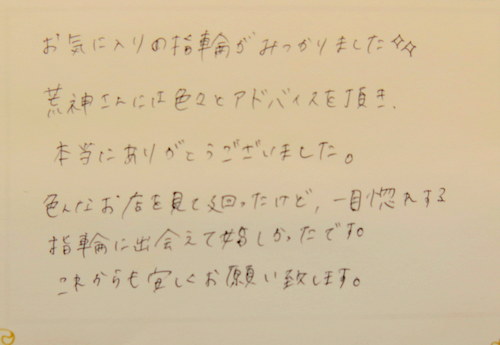 お気に入りの指輪がみつかりました☆☆
荒神さんには色々とアドバイスを頂き、
本当にありがとうございました。
色んなお店を見て廻ったけど、一目惚れする
指輪に出会えて嬉しかったです。
これからも宜しくお願い致します。